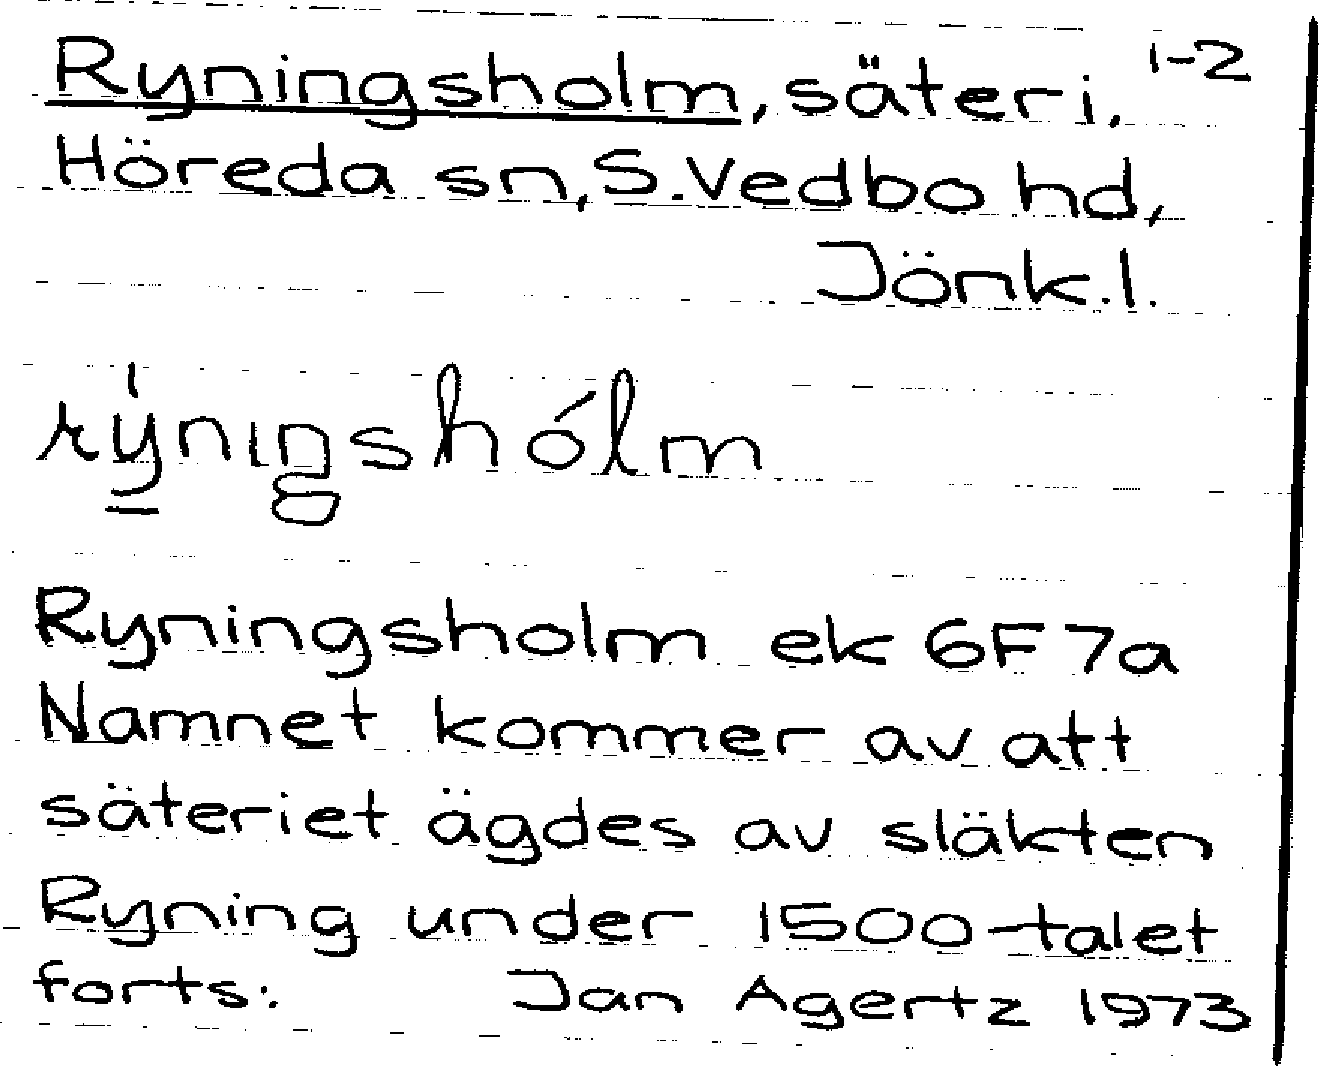 Ryningsholm, säteri, 1-2
Höreda sn, S. Vedbo hd,
Jönk. l.
rýnıŋshólm
Ryningsholm ek 6F7a
Namnet kommer av att
säteriet ägdes av släkten
Ryning under 1500-talet
forts: Jan Agertz 1973